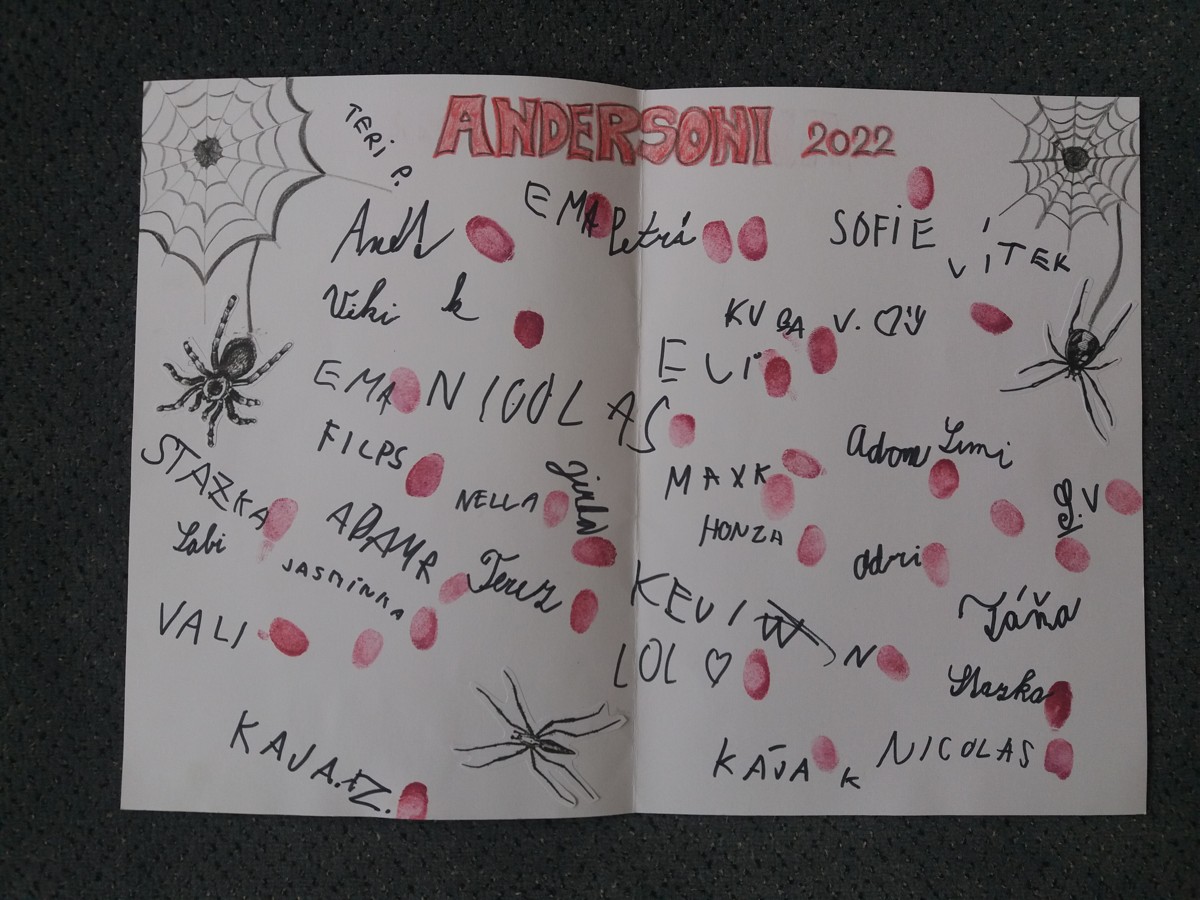 ANDERSONI 2022
TERI P.
EMA Petrá
SOFIE
VÍTEK
Viki k
KUBA V.
EMA
NICOLAS
ELI
FILPS
STAZKA
NELLA
MAXK
Adam Simi
HONZA
ADAMR
Terez
Adri
J.V
Sabi
JASMÍNKA
VALI
KEVIN
LOL ♡
Táňa
Stazka
KAJA.FZ.
KÁJA K
NICOLAS